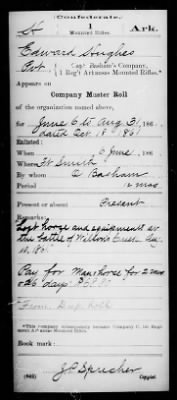 Confederate.
H 1 Ark.
Mounted Rifles.
Edward Hughes
Pvt., Capt. Basham's Company,
1 Reg't Arkansas Mounted Rifles.*
Appears on
Company Muster Roll
of the organization named above,
for June 6 to Aug 31, 186
dated Oct. 18 1861
Enlisted:
When 6 June, 186
Where Ft Smith
By whom O Basham
Period 12 mos
Present or absent Present
Remarks:
Lost horse and equipments at
the battle of Aug.
10, 1861
Pay for Man & horse for 2 mos
& 26 days
From Dup. roll
*This company subsequently became Company H, 1st Regiment Arkansas Mounted Rifles.
Book mark:
J C Sprecher
(642) Copyist.